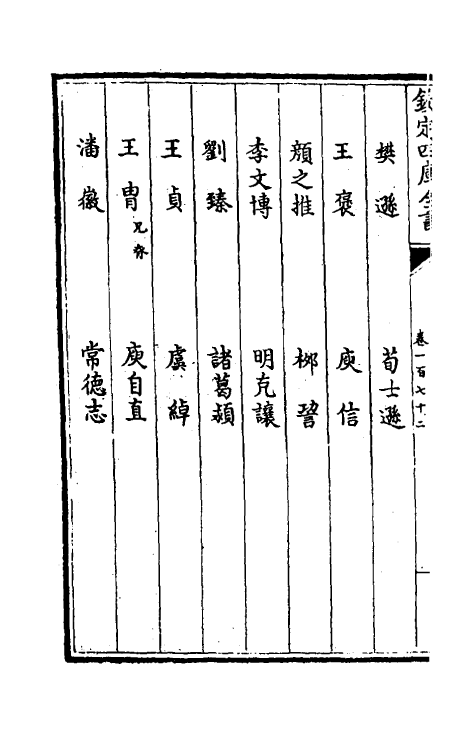 欽定四庫全書
卷一百七十二
樊遜　荀士遜
王褒　庾信
顏之推　柳䛒
李文博　明克讓
劉臻　諸葛潁
王貞　虞綽
王胄兄眘　庾自直
潘徽　常德志